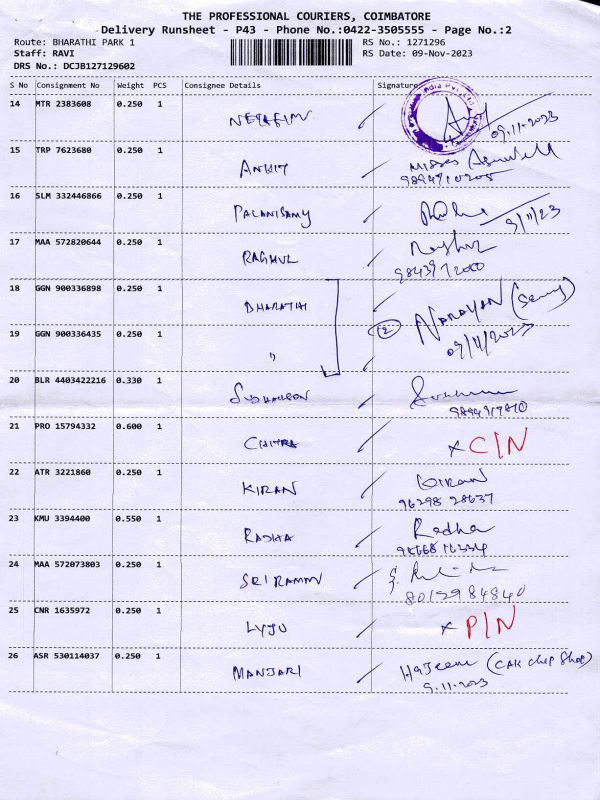 THE PROFESSIONAL COURIERS, COIMBATORE
Delivery Runsheet - P43 - Phone No.:0422-3505555 - Page No.:2
Route: BHARATHI PARK 1 RS No.: 1271296
Staff: RAVI RS Date: 09-Nov-2023
DRS No.: DCJB127129602
S No Consignment No Weight PCS Consignee Details Signature
14 MTR 2383608 0.250 1
09.11.2023
15 TRP 7623680 0.250 1 ANKIT
16 SLM 332446866 0.250 1 PALANISAMY
9/11/23
17 MAA 572820644 0.250 1 RAGHUL
18 GGN 900336898 0.250 1 BHARATHI
2 NARAYAN
09/11/2023
19 GGN 900336435 0.250 1 "
20 BLR 4403422216 0.330 1
21 PRO 15794332 0.600 1 CHITRA x C/N
22 ATR 3221860 0.250 1 KIRAN KIRAN
96298 28637
23 KMU 3394400 0.550 1 RADHA Radha
24 MAA 572073803 0.250 1 SRIRAMM
8012984840
25 CNR 1635972 0.250 1 LYJU x P/N
26 ASR 530114037 0.250 1 MANJARI
9.11.2023